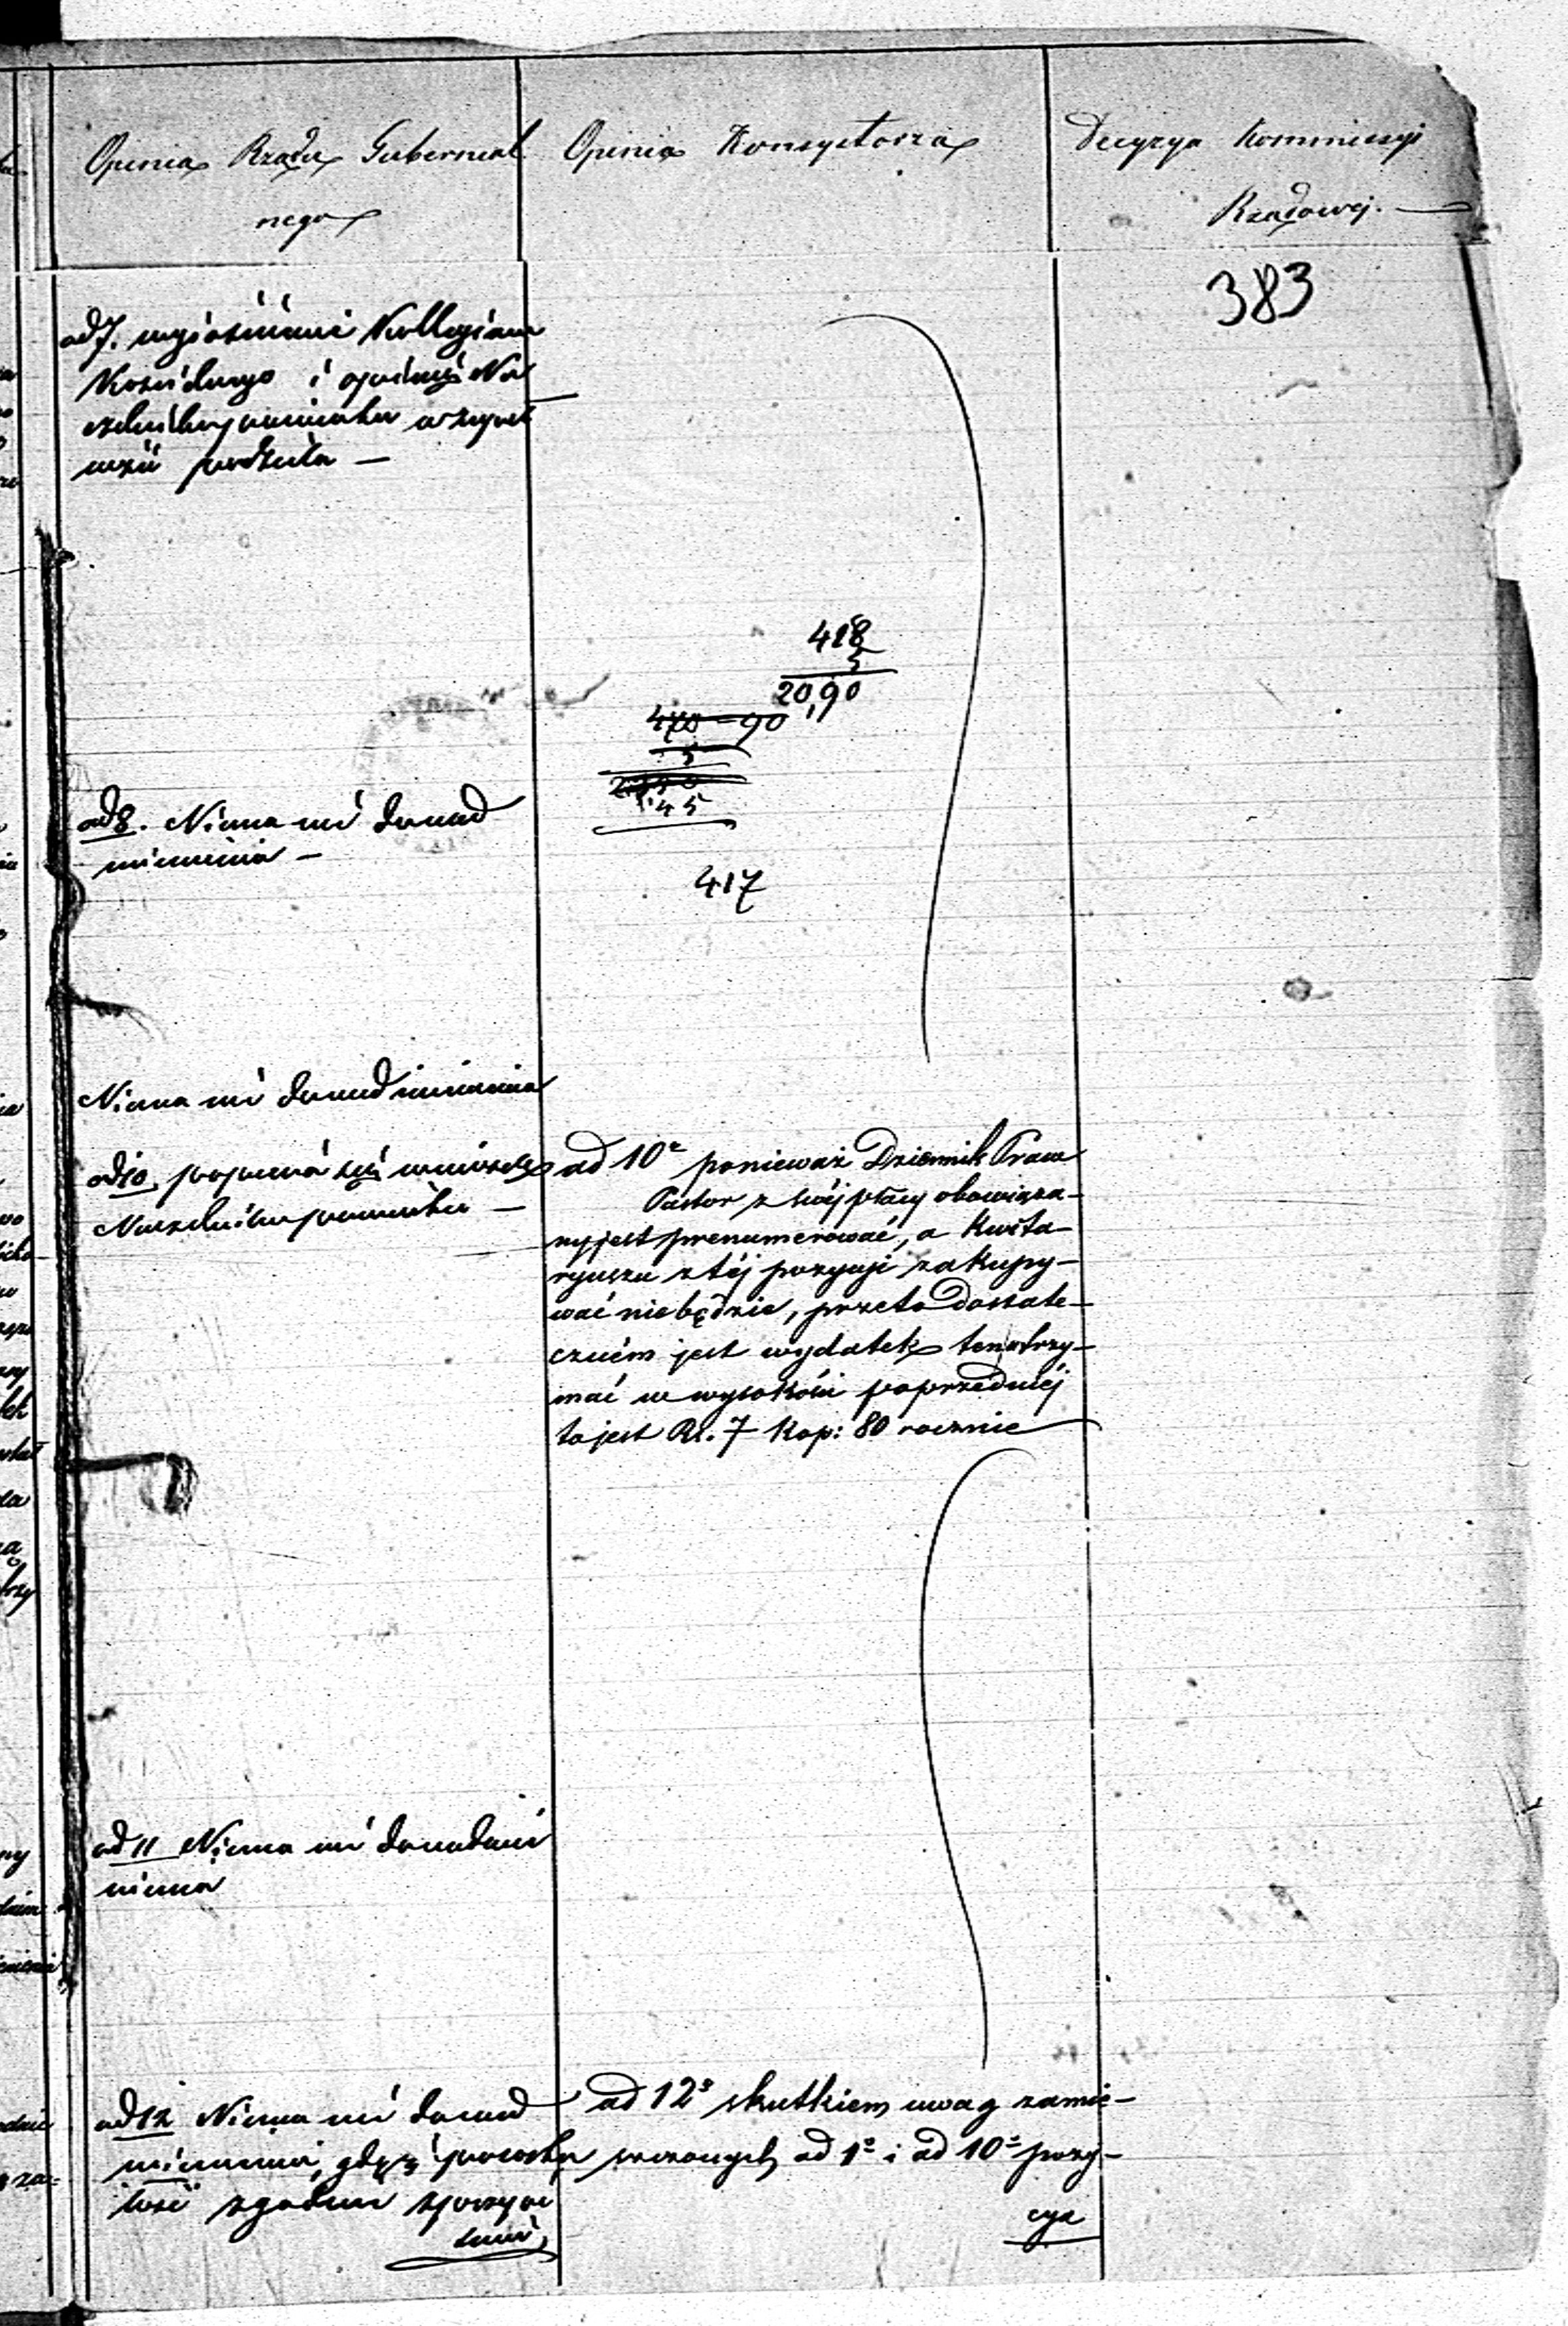 Opinia Rządu Gubernial
nego
Opinia Konsystorza
Decyzya Kommissyi
Rządowej.
383
ad 7. wyjaśnienie Kollegium
Kościelnego i opinię Na
czelnika powiatu w zupeł
ności podziela —
418
5
20,90
470-90
5
45
ad 8. Niema nic do nad
mienienia —
417
Niema nic do nadmienienia
ad 10. popiera się wniosek
Naczelnika powiatu —
ad 10º ponieważ Dziennik Praw
Pastor z swéj płacy obowiąza-
ny jest prenumerować, a Kwita-
ryusza z téj pozycyi zakupy-
wać nie będzie, przeto dostate-
czném jest wydatek ten utrzy-
mać w wysokości poprzedniéj
to jest Rs. 7 Kop: 80 rocznie
ad 11 Niema nic do nadmie
nienia
ad 12 Niema nic do nad
mienienia, gdyż
zgodne
ad 12º skutkiem uwag zamie-
szczonych ad 1º i ad 10º pozy-
cya